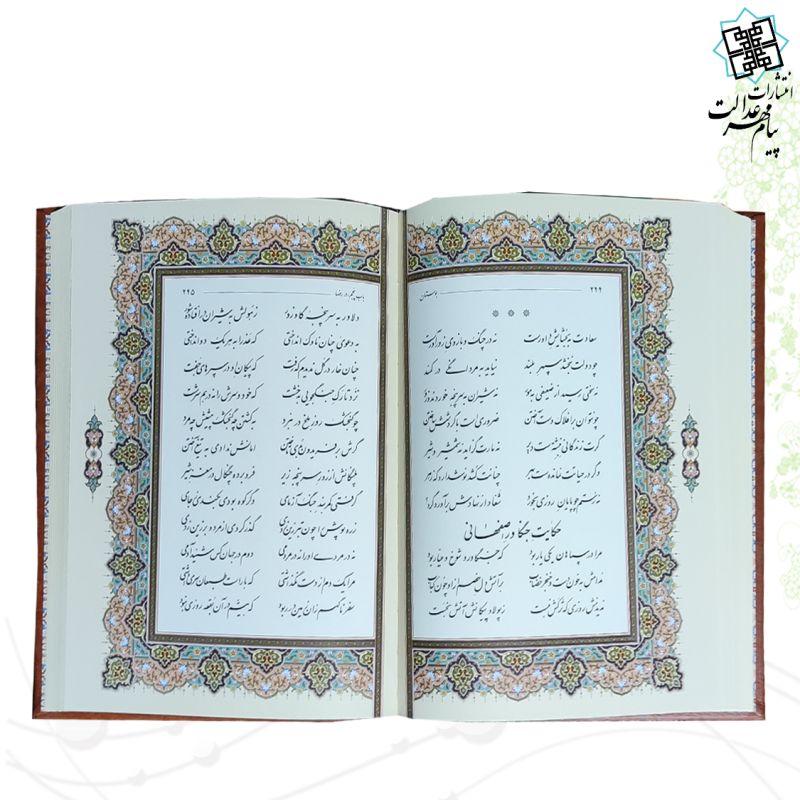 انتشارات
پیام مهر عدالت
۲۴۴ بوستان
سعادت به بخشایش داورست نه در چنگ و بازوی زورآورست
چو دولت نبخشد سپهر بلند نیاید به مردانگی در کمند
نه سختی رسد از ضعیفی به مور نه شیران به سرپنجه خوردند و زور
چو نتوان بر افلاک دست آختن ضروری است با گردشش ساختن
گرت زندگانی نبشتست دیر نه مارت گزاید نه شمشیر و شیر
وگر در حیاتت نماندست بهر چنانت کشد نوشدارو که زهر
نه رستم چو پایان روزی بخورد شغاد از نهادش برآورد گرد
حکایت جنگاور اصفهانی
مرا در سپاهان یکی یار بود که جنگاور و شوخ و عیار بود
مدامش به خون دست و خنجر خضاب بر آتش دل خصم ازو چون کباب
ندیدمش روزی که ترکش نبست ز پولاد پیکانش آتش نجست
باب پنجم در رضا ۲۴۵
دلاور به سرپنجه گاوزور ز هولش به شیران در افتاده شور
به دعوی چنان ناوک انداختی که عذرا به هر یک دو انداختی
چنان خار در گل ندیدم که رفت که پیکان او در سپرهای جفت
نزد تارک جنگجویی به خشت که خود و سرش را نه در هم سرشت
چو گنجشک روز ملخ در نبرد به کشتن چه گنجشک پیشش چه مرد
گرش بر فریدون بدی تاختن امانش ندادی به تیغ آختن
پلنگانش از زور سرپنجه زیر فرو برده چنگال در مغز شیر
گرفتی کمربند جنگ آزمای وگر کوه بودی بکندی ز جای
زره پوش را چون تبرزین زدی گذر کردی از مرد و بر زین زدی
نه در مردی او را نه در مردمی دوم در جهان کس شنید آدمی
مرا یک دم از دست نگذاشتی که با راست طبعان سری داشتی
سفر ناگهم زان زمین در ربود که بیشم در آن بقعه روزی نبود